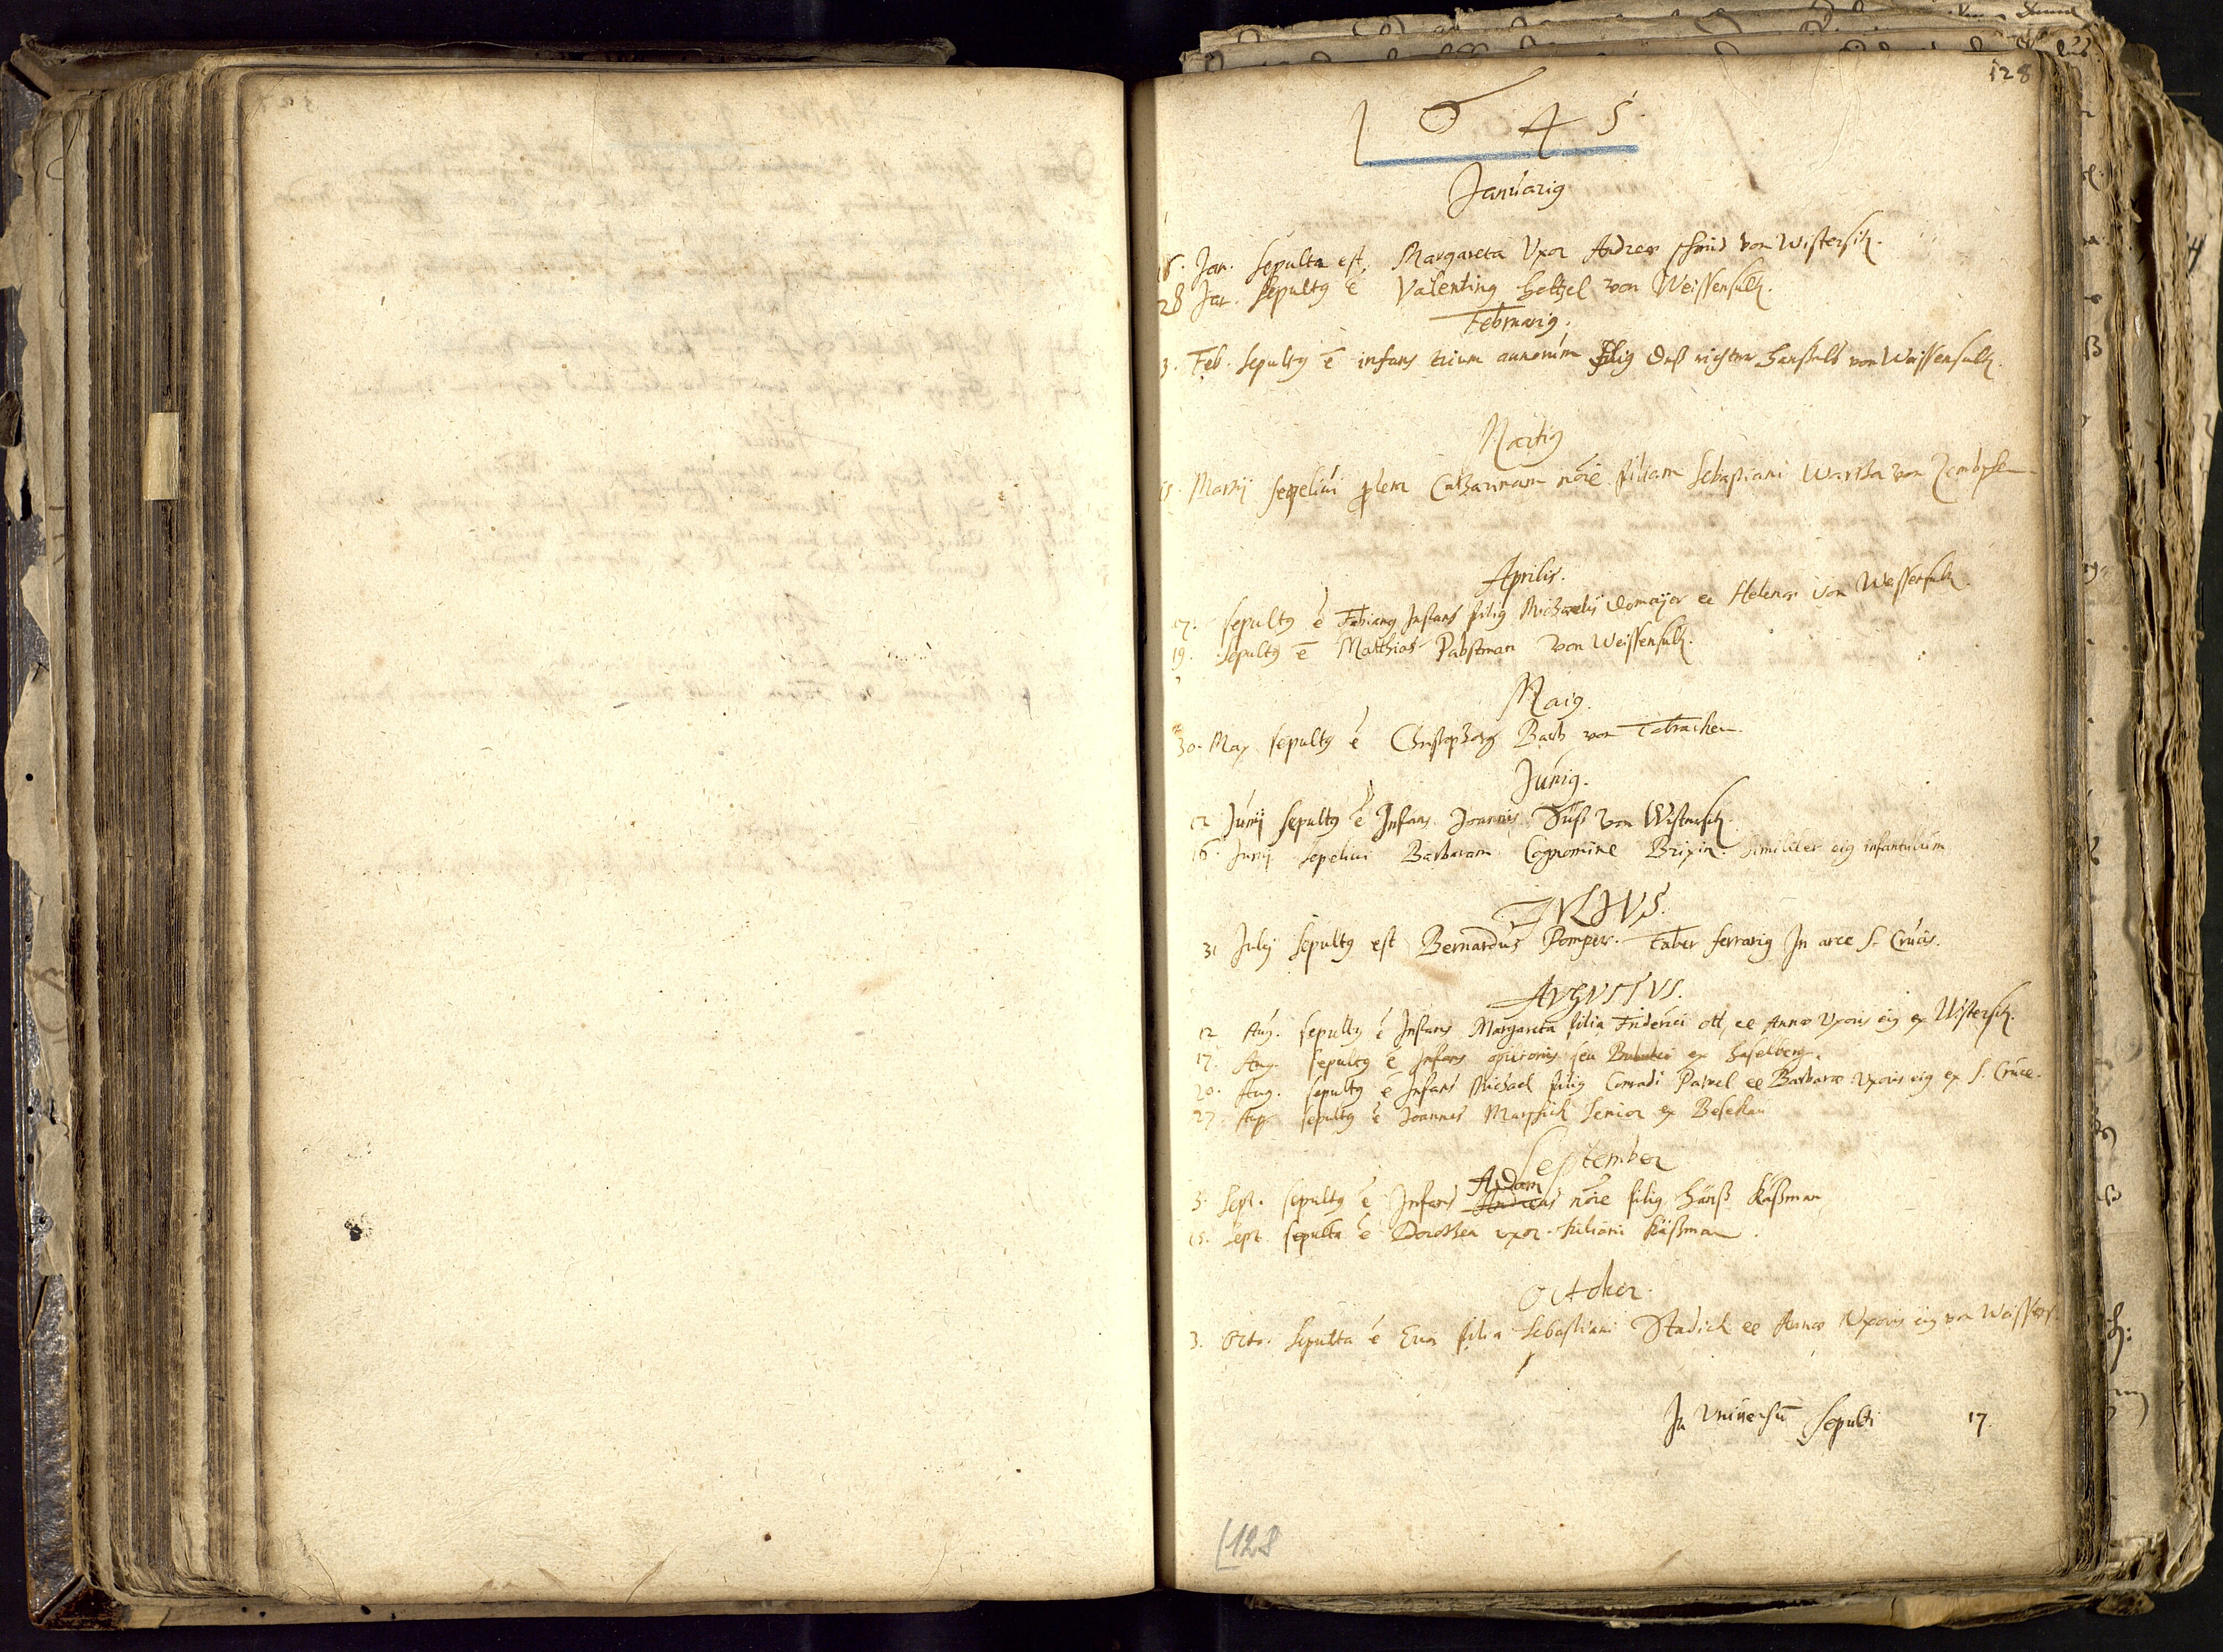 128
1645.
Januarig
16. Jan. Sepulta est. Margareta Vxor Andreæ schmid von Wistersitz.
28 Jan. Sepultg ē Valenting heltzel von Weissensultz.
Februarig.
3. Feb. Sepultg ē infans trium annorum filig deß richter hansels von Weissensultz.
Martig
15. Martij sepelivi plem Catharinam nōie filiam Sebastiani von
Aprilis.
17. sepultg ē Fabiang Infans filig Michaelis Domaijer ee Helenæ von Weissensultz.
19. Sepultg ē Matthias Pabstman von Weissensultz.
Maig.
30. May sepultg ē Christophorg Barb von
Junig.
12 Junij sepultg ē Infans Joannis Süß von Wistersitz.
16. Junij sepelivi Barbaram Cognomine Brixin. Similiter eig infantulum
JVLIVS.
31 Julij sepultg est Bernardus Pomper. Faber ferrarig In arce S. Crucis.
AVGVSTVS.
12 Aug. sepultg ē Infans Margareta filia Friderici ott, ee Annæ Vxoris eig ex Wistersitz.
17. Aug. sepultg ē Infans opilionis seu Bubulci ex haselberg.
20. Aug. sepultg ē Infans Michael filig Conradi Pawel ee Barbaræ Vxoris eig ex S. Cruce.
27. Aug. sepultg ē Joannes Senior ex
September
Adam
3. Sept. sepultg ē Infans Andreas nōie filig hanß Käßman
15. Sept. sepulta ē Dorothea vxor Juliani Käßman.
October.
3. Octo. Sepulta ē Eva filia Sebastiani Stadick ee Annæ Vxoris eig von Weissens.
In Vniversū Sepulti 17.
128